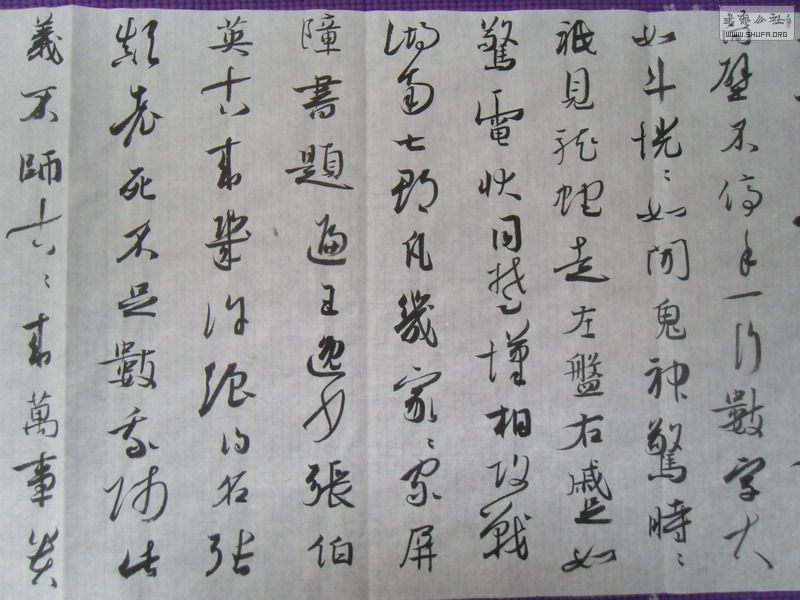 書藝公社
WWW.SHUFA.ORG
向壁不停手一行數字大
如斗恍〻如聞鬼神驚時〻
祇見龍蛇走左盤右蹙如
驚電狀同楚漢相攻戰
湖南七郡凡幾家〻家屏
障書題遍王逸少張伯
英古來幾許浪得名張
顛老死不足數我師此
義不師古〻來萬事貴